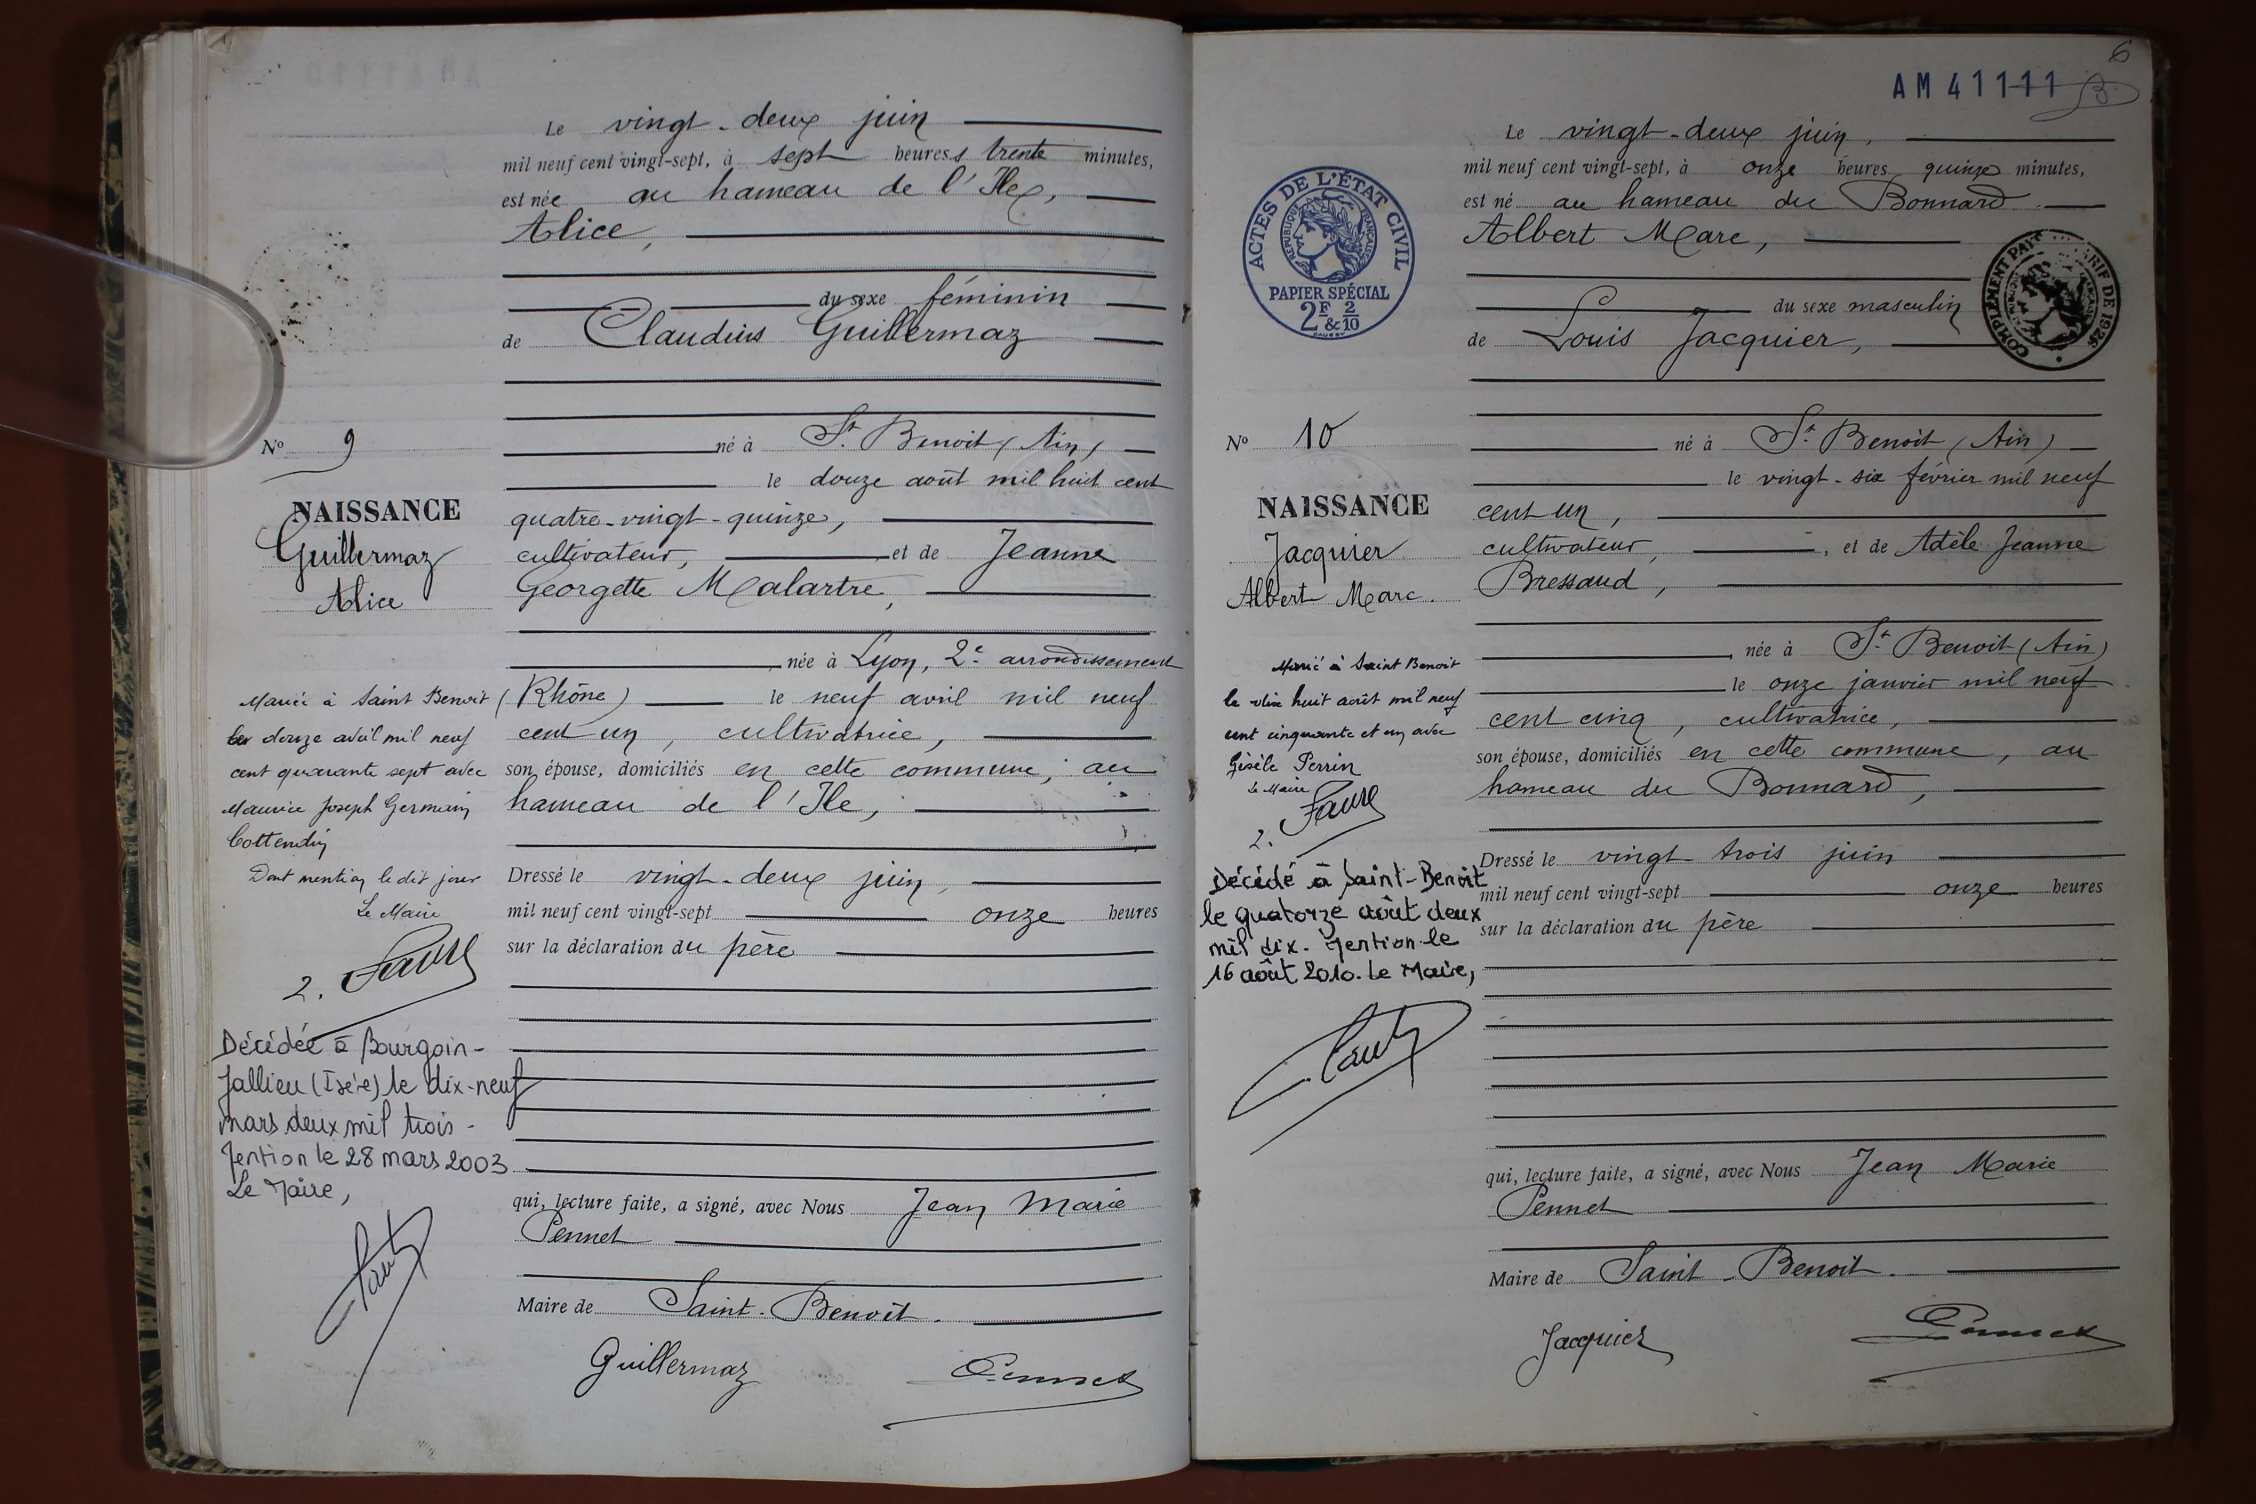 Le vingt-deux juin
mil neuf cent vingt-sept, à sept heures trente minutes,
est née au hameau de l'Ile,
Alice,
du sexe féminin
de Claudius Guillermaz
né à St. Benoit (Ain)
le douze août mil huit cent
quatre-vingt-quinze,
cultivateur, et de Jeanne
Georgette Malartre,
née à Lyon, 2e arrondissement
(Rhône) le neuf avril mil neuf
cent un, cultivatrice,
son épouse, domiciliés en cette commune, au
hameau de l'Ile,
Dressé le vingt-deux juin,
mil neuf cent vingt-sept onze heures
sur la déclaration du père
qui, lecture faite, a signé, avec Nous Jean Marie
Pennet
Maire de Saint-Benoît.
Guillermaz Pennet
No 9
NAISSANCE
Guillermaz
Alice
Mariée à Saint Benoit
le douze avril mil neuf
cent quarante sept avec
Maurice Joseph Germain
Cottendin
Dont mention le dit jour
Le Maire
2. Faure
Décédée à Bourgoin-
Jallieu (Isère) le dix-neuf
mars deux mil trois-
Mention le 28 mars 2003
Le Maire,
6
AM 41111
Le vingt-deux juin,
mil neuf cent vingt-sept, à onze heures quinze minutes,
est né au hameau du Bonnard
Albert Marc,
du sexe masculin
de Louis Jacquier,
né à St. Benoît (Ain)
le vingt-six février mil neuf
cent un,
cultivateur, et de Adèle Jeanne
Bressaud,
née à St. Benoit (Ain)
le onze janvier mil neuf
cent cinq, cultivatrice,
son épouse, domiciliés en cette commune, au
hameau du Bonnard,
Dressé le vingt trois juin
mil neuf cent vingt-sept onze heures
sur la déclaration du père
qui, lecture faite, a signé, avec Nous Jean Marie
Pennet
Maire de Saint-Benoit.
Jacquier Pennet
ACTES DE L'ÉTAT CIVIL
RÉPUBLIQUE FRANÇAISE
PAPIER SPÉCIAL
2F & 2/10
COMPLÉMENT TARIF DE 1926
No 10
NAISSANCE
Jacquier
Albert Marc.
Marié à Saint Benoit
le dix huit août mil neuf
cent cinquante et un avec
Gisèle Perrin
Le Maire
2. Faure
Décédé à Saint-Benoît
le quatorze août deux
mil dix. Mention le
16 août 2010. Le Maire,